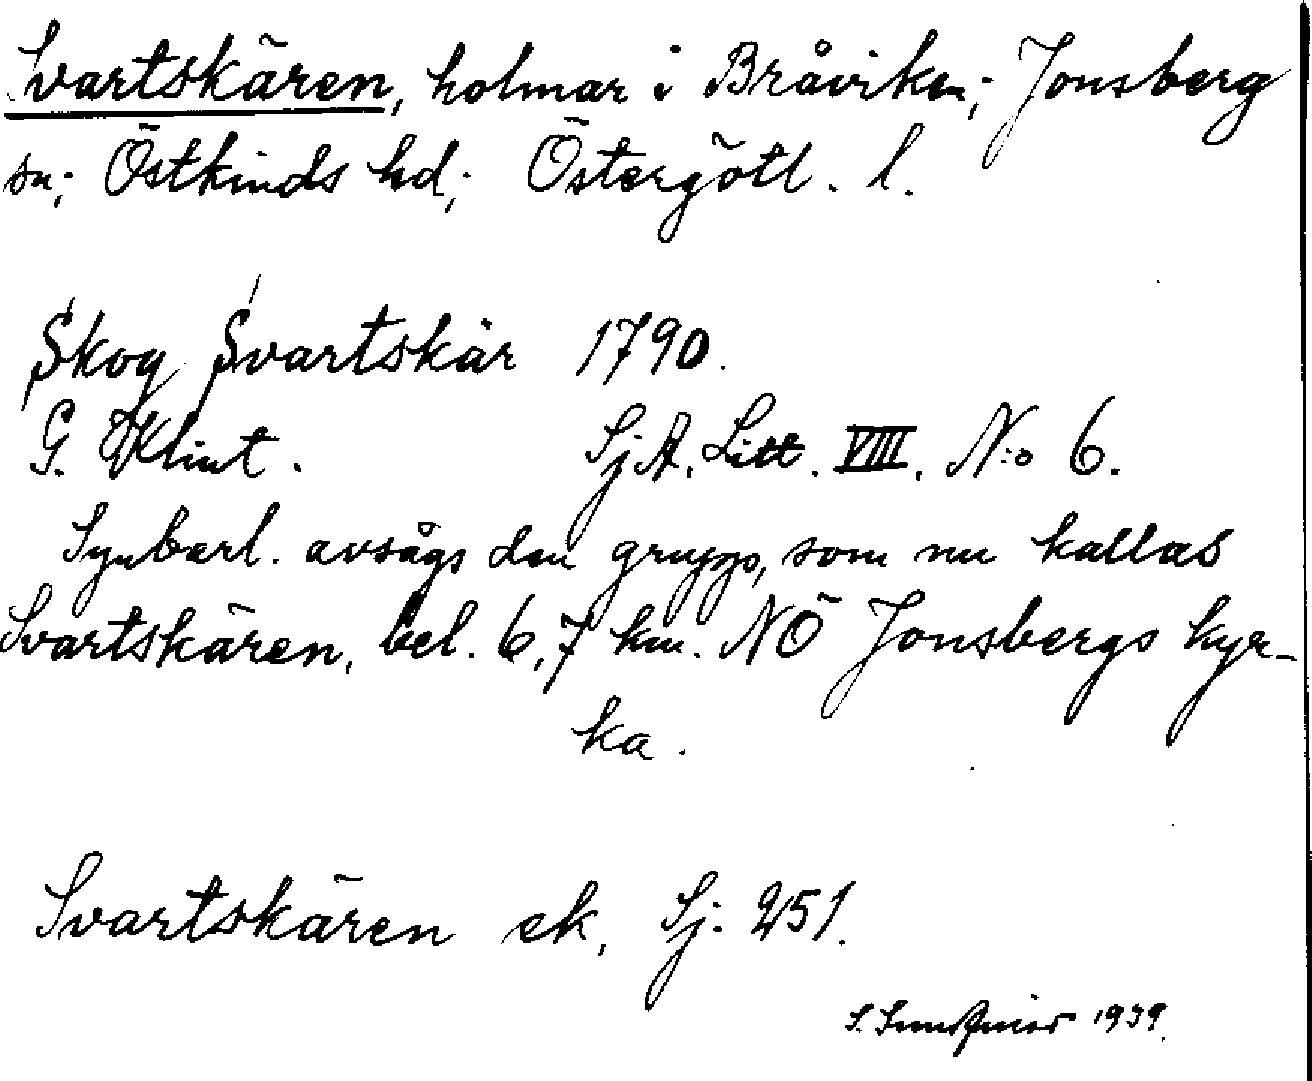 Svartskären, holmar i Bråviken; Jonsberg
sn; Östkinds hd; Östergötl. l.
Skog Svartskär 1790.
G. Klint. SjA. Litt. VIII. N:o 6.
Synbarl. avságs den grupp, som nu kallas
Svartskären, bel. 6,7 km. NÖ Jonsbergs kyr-
ka.
Svartskären ek, Sj. 251.
S. 1939.